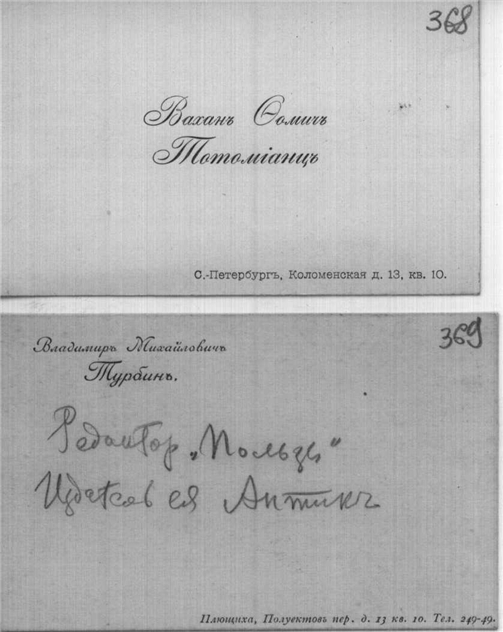 368
Ваханъ Ѳомичъ
Тотоміанцъ
С.-Петербургъ, Коломенская д. 13, кв. 10.
369
Владимиръ Михайловичъ
Турбинъ.
Редактор „Пользы"
Антикъ
Плющиха, Полуектовъ пер. д. 13 кв. 10. Тел. 249-49.